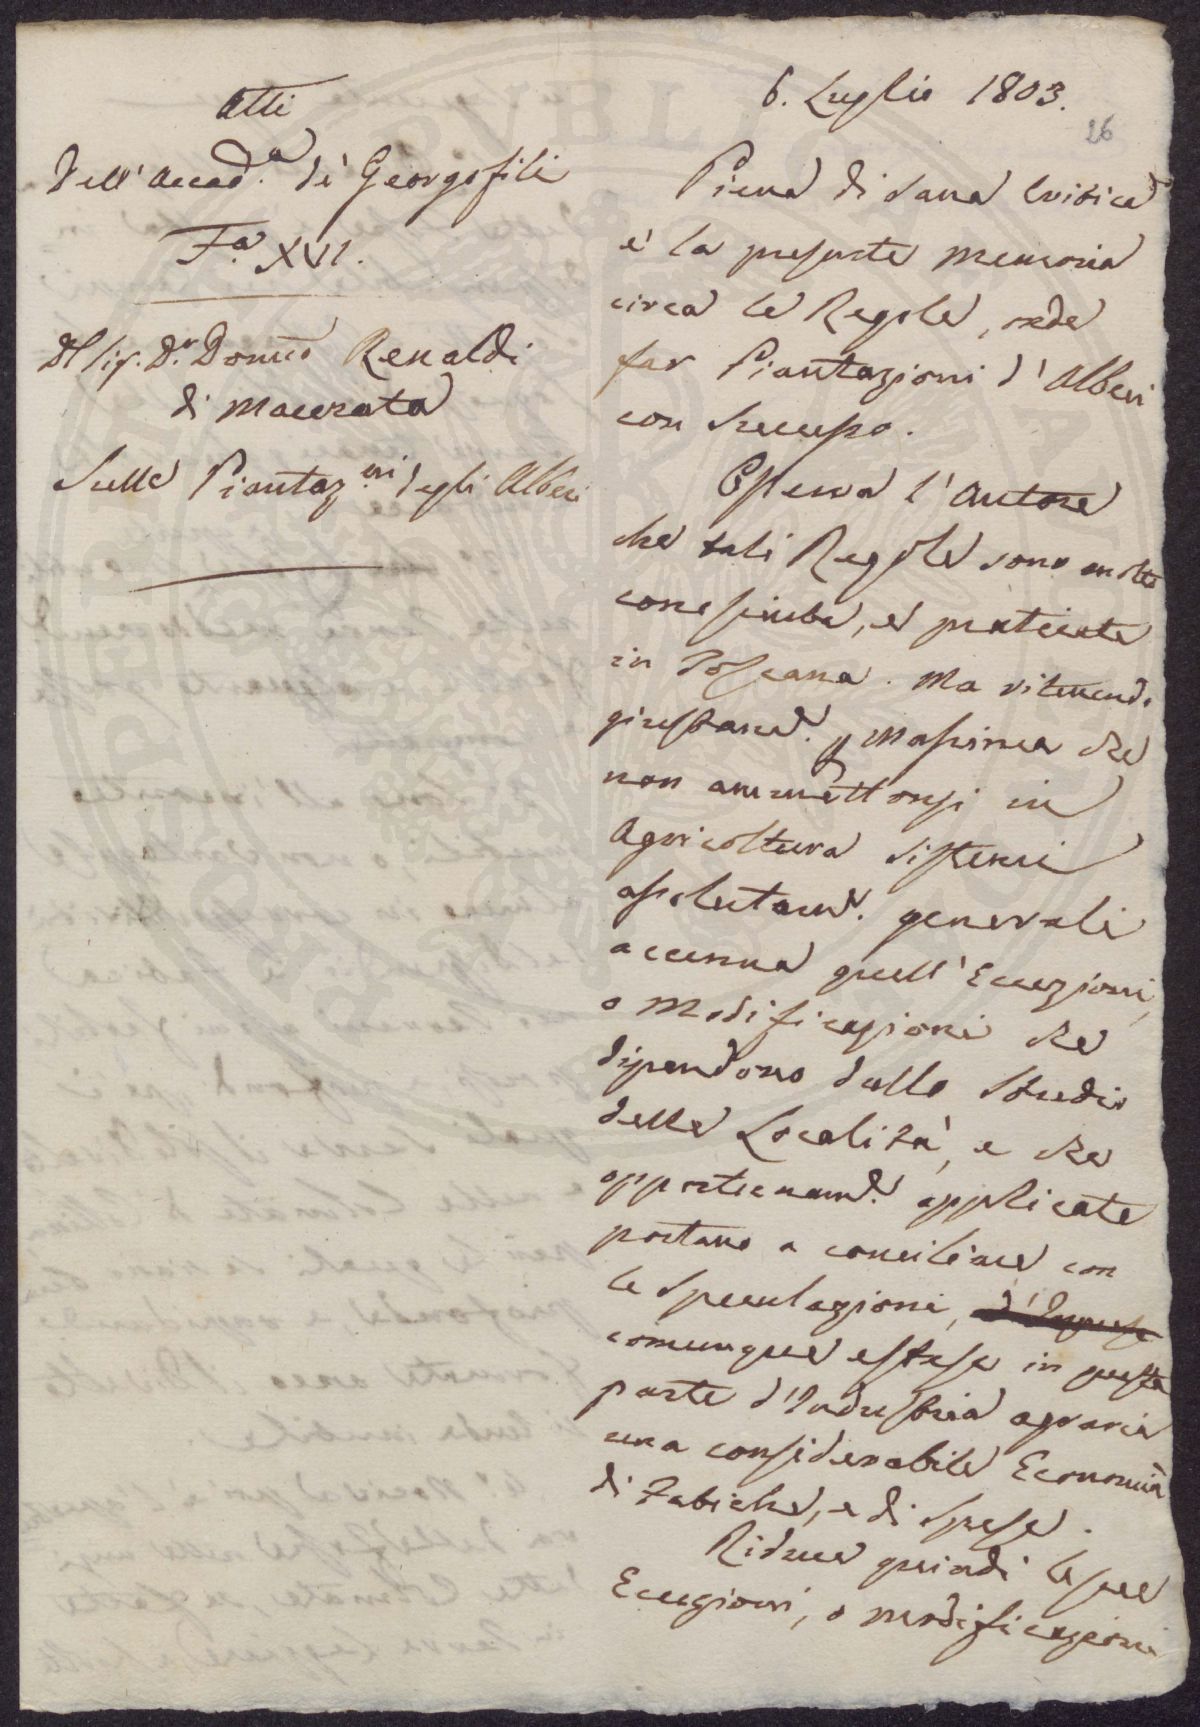 Atti
Dell'Accad.a de' Georgofili
Fa. XVI.
Del Sig. Dr. Domco Renaldi
di Macerata
Sulle Piantaz.oni degli Alberi
6. Luglio 1803.
26
Piena di sana Critica
è la presente Memoria
circa le Regole, onde
far Piantazioni d'Alberi
con Successo.
Osserva l'Autore
che tali Regole sono molto
conosciute, e praticate
in Toscana. Ma ritenendo
giustam.e Massima che
non ammettonsi in
Agricoltura Sistemi
assolutam.e generali
accenna quell'Eccezioni,
o Modificazioni che
dipendono dallo Studio
delle Località, e che
opportunam.e applicate
portano a conciliare con
le Speculazioni,
comunque estese in questa
parte d'Industria agraria
una considerabile Economia
di Fatiche, e di Spese.
Riduce quindi le sue
Eccezioni, o modificazioni